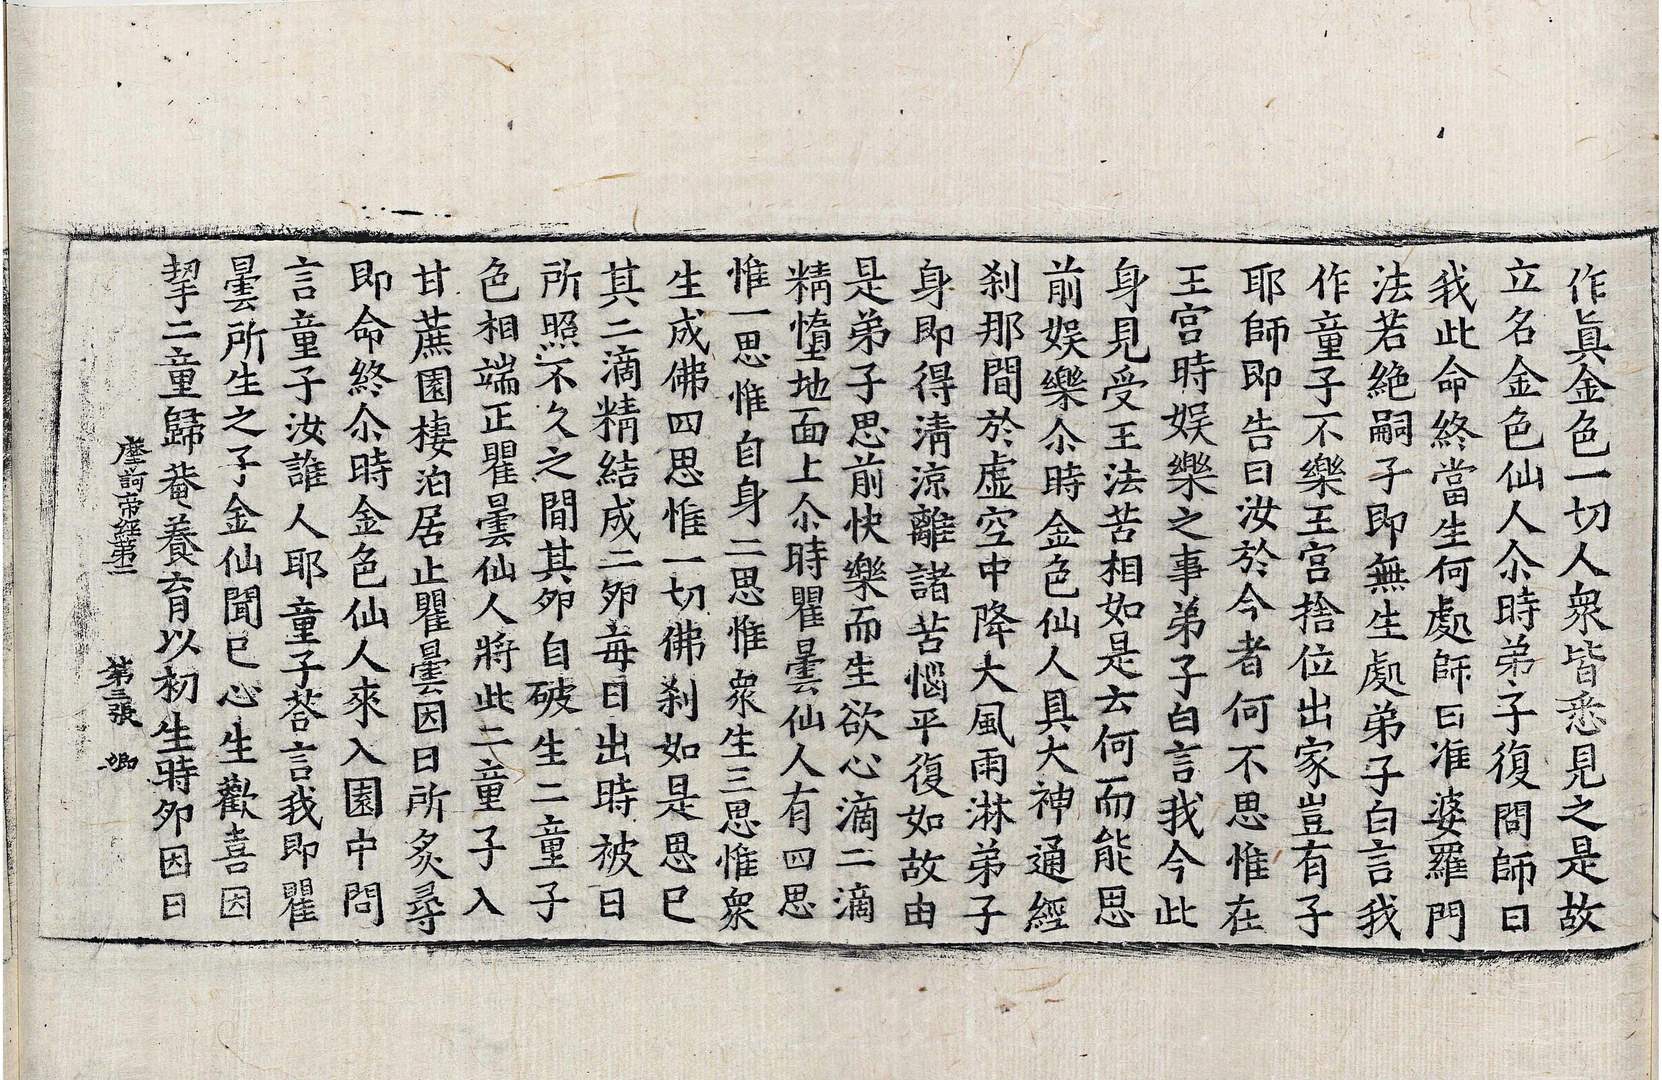 作眞金色一切人衆皆悉見之是故
立名金色仙人尒時弟子復問師曰
我此命終當生何處師曰准婆羅門
法若絶嗣子即無生處弟子白言我
作童子不樂王宮捨位出家豈有子
耶師即告曰汝於今者何不思惟在
王宮時娱樂之事弟子白言我今此
身見受王法苦相如是云何而能思
前娱樂尒時金色仙人具大神通經
刹那間於虚空中降大風雨淋弟子
身即得淸凉離諸苦惱平復如故由
是弟子思前快樂而生欲心滴二滴
精墮地面上尒時瞿曇仙人有四思
惟一思惟自身二思惟衆生三思惟衆
生成佛四思惟一切佛刹如是思已
其二滴精結成二夘每日出時被日
所照不久之間其夘自破生二童子
色相端正瞿曇仙人將此二童子入
甘蔗園棲泊居止瞿曇因日所炙尋
即命終尒時金色仙人來入園中問
言童子汝誰人耶童子荅言我即瞿
曇所生之子金仙聞已心生歡喜因
挈二童歸菴養育以初生時夘因日
摩訶帝經第一
第三張